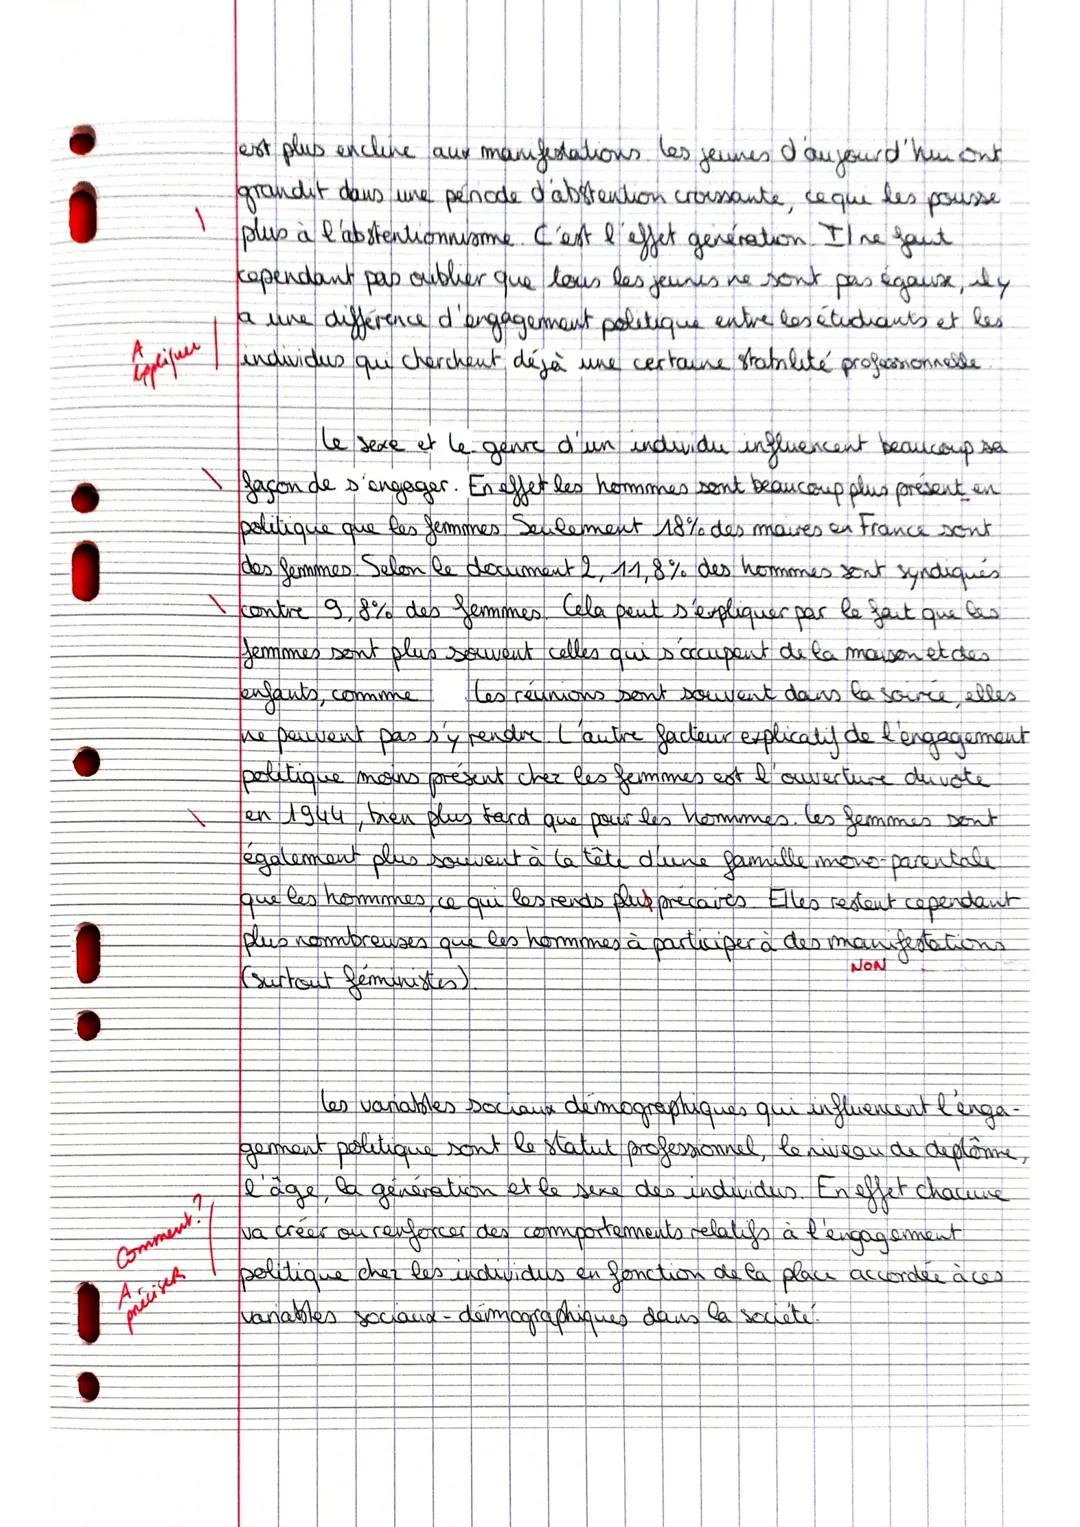 est plus encline aux manifestations. Les jeunes d'aujourd'hui ont
grandit dans une période d'abstention croissante, ce qui les pousse
plus à l'abstentionnisme. C'est l'effet génération. Il ne faut
cependant pas oublier que tous les jeunes ne sont pas égaux, il y
a une différence d'engagement politique entre les étudiants et les
A
appliquer
individus qui cherchent déjà une certaine stabilité professionnelle.
Le sexe et le genre d'un individu influencent beaucoup sa
façon de s'engager. En effet les hommes sont beaucoup plus présent en
politique que les femmes. Seulement 18% des maires en France sont
des femmes. Selon le document 2, 11,8% des hommes sont syndiqués
contre 9,8% des femmes. Cela peut s'expliquer par le fait que les
femmes sont plus souvent celles qui s'occupent de la maison et des
enfants, comme les réunions sont souvent dans la soirée, elles
ne peuvent pas s'y rendre. L'autre facteur explicatif de l'engagement
politique moins présent chez les femmes est l'ouverture du vote
en 1944, bien plus tard que pour les hommes. Les femmes sont
également plus souvent à la tête d'une famille mono-parentale
que les hommes, ce qui les rends plus précaires. Elles restent cependant
plus nombreuses que les hommes à participer à des manifestations
NON
(surtout féministes).
Les variables sociaux démographiques qui influencent l'enga-
gement politique sont le statut professionnel, le niveau de diplôme,
l'âge, la génération et le sexe des individus. En effet chacune
Comment ?
va créer ou renforcer des comportements relatifs à l'engagement
A
préciser
politique chez les individus en fonction de la place accordée à ces
variables sociaux-démographiques dans la société.